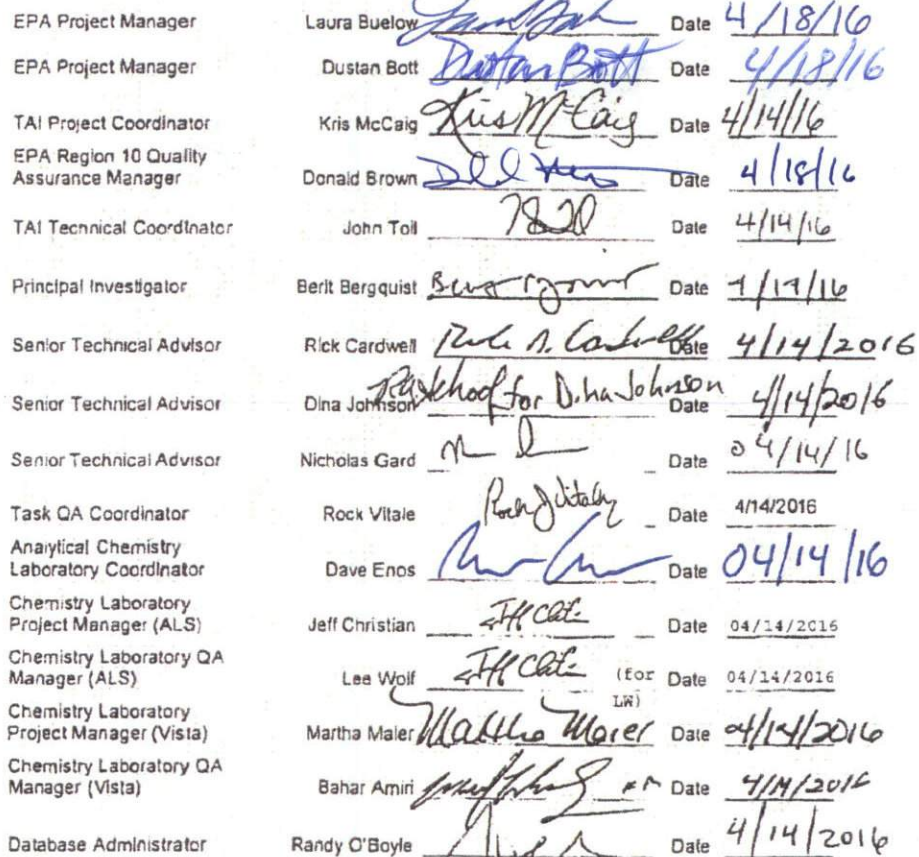 EPA Project Manager Laura Buelow Date 4/18/16
EPA Project Manager Dustan Bott Dustan Bott Date 4/18/16
TAI Project Coordinator Kris McCaig Kris McCaig Date 4/14/16
EPA Region 10 Quality
Assurance Manager Donald Brown Date 4/18/16
TAI Technical Coordinator John Toll Date 4/14/16
Principal Investigator Berit Bergquist Date
Senior Technical Advisor Rick Cardwell Date 4/14/2016
Senior Technical Advisor Dina Johnson for Dina Johnson Date 4/14/2016
Senior Technical Advisor Nicholas Gard Date 04/14/16
Task QA Coordinator Rock Vitale Rock J Vitale Date 4/14/2016
Analytical Chemistry
Laboratory Coordinator Dave Enos Date 04/14/16
Chemistry Laboratory
Project Manager (ALS) Jeff Christian Date 04/14/2016
Chemistry Laboratory QA
Manager (ALS) Lee Wolf (for LW) Date 04/14/2016
Chemistry Laboratory
Project Manager (Vista) Martha Maier Martha Maier Date 04/14/2016
Chemistry Laboratory QA
Manager (Vista) Bahar Amiri Date 4/14/2016
Database Administrator Randy O'Boyle Date 4/14/2016